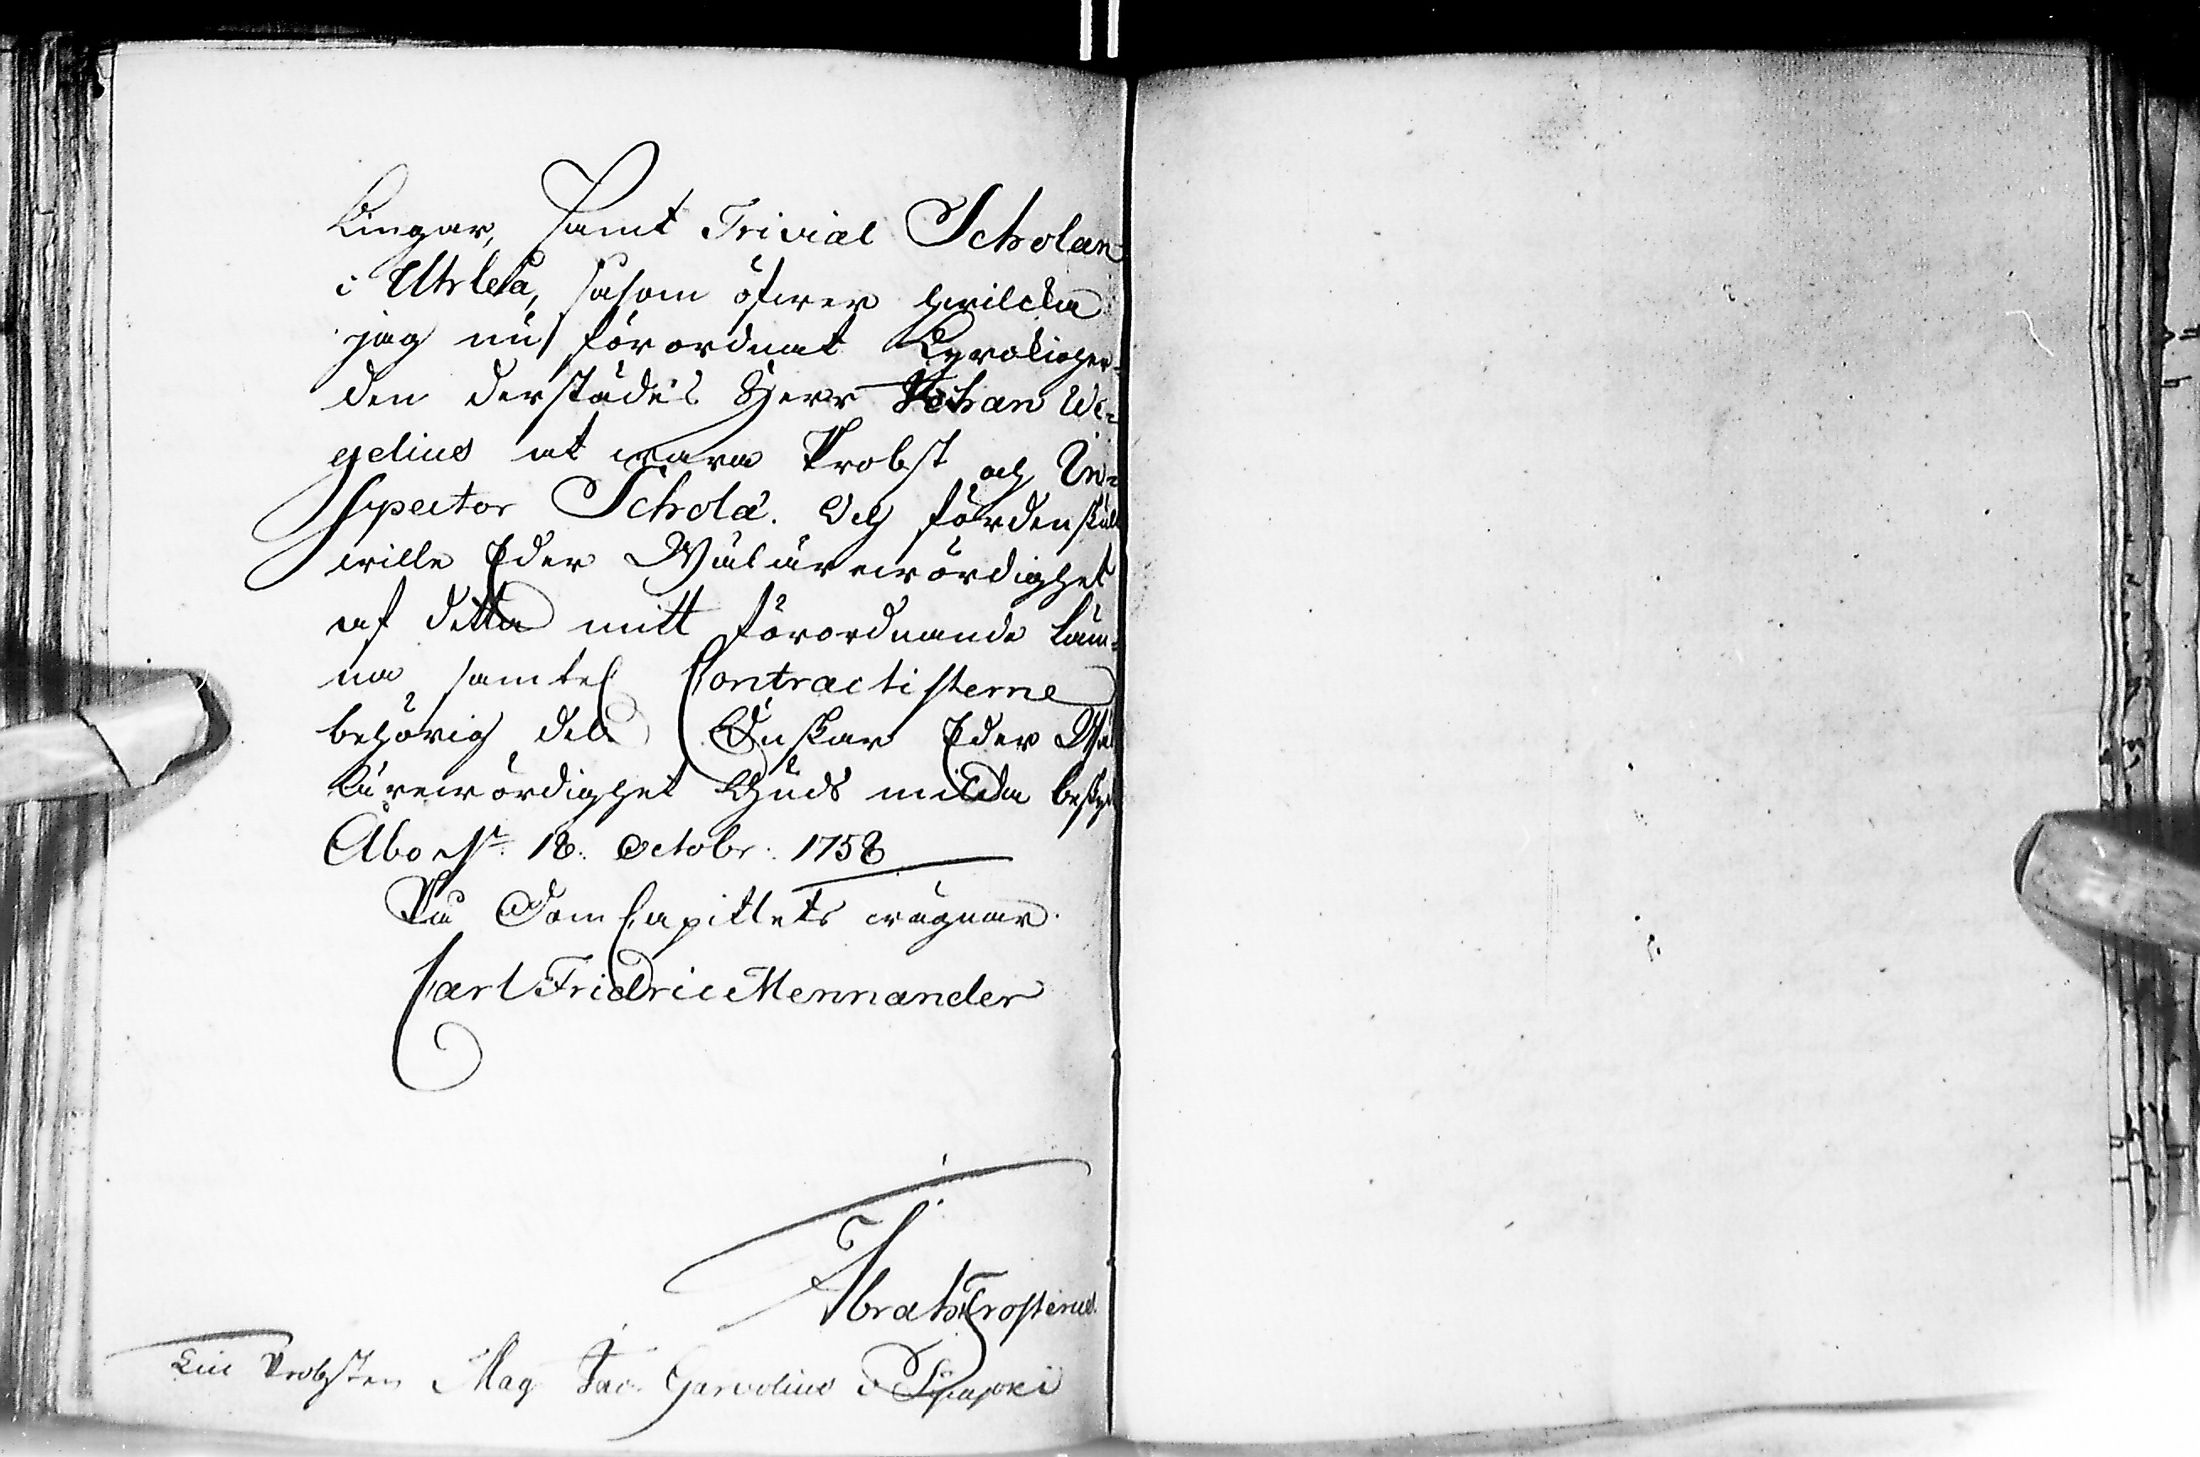 lingar, samt Trivial Scholan
i Uhrlela, såsom öfwer hwilcka
jag nu förordnat Kyrckioher-
den derstädes Herr Johan We-
gelius at wara Probst och In-
spector Scholæ. Och fördenskull
wille Eder Wälärewördighet
af detta mitt förordnande läm-
na samtel. Contractisterne
behörig del. Önskar Eder Wäl
Lärewördighet Guds milda besky
Åbo d. 18. Octobr. 1758
På DomCapitlets wägnar.
Carl Fridric Mennander
Abrah Frosterus.
Till Probsten Mag Jac. Garvolius i